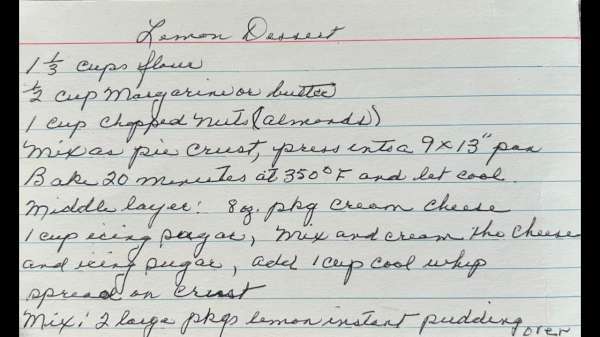 Lemon Dessert
1 1/3 cups flour
1/2 cup Margarine or butter
1 cup chopped nuts (almonds)
Mix as pie crust, press into a 9x13" pan
Bake 20 minutes at 350°F and let cool.
Middle layer: 8 oz. pkg cream cheese
1 cup icing sugar, Mix and cream the cheese
and icing sugar, add 1 cup cool whip
spread on crust
Mix: 2 large pkgs lemon instant pudding
over